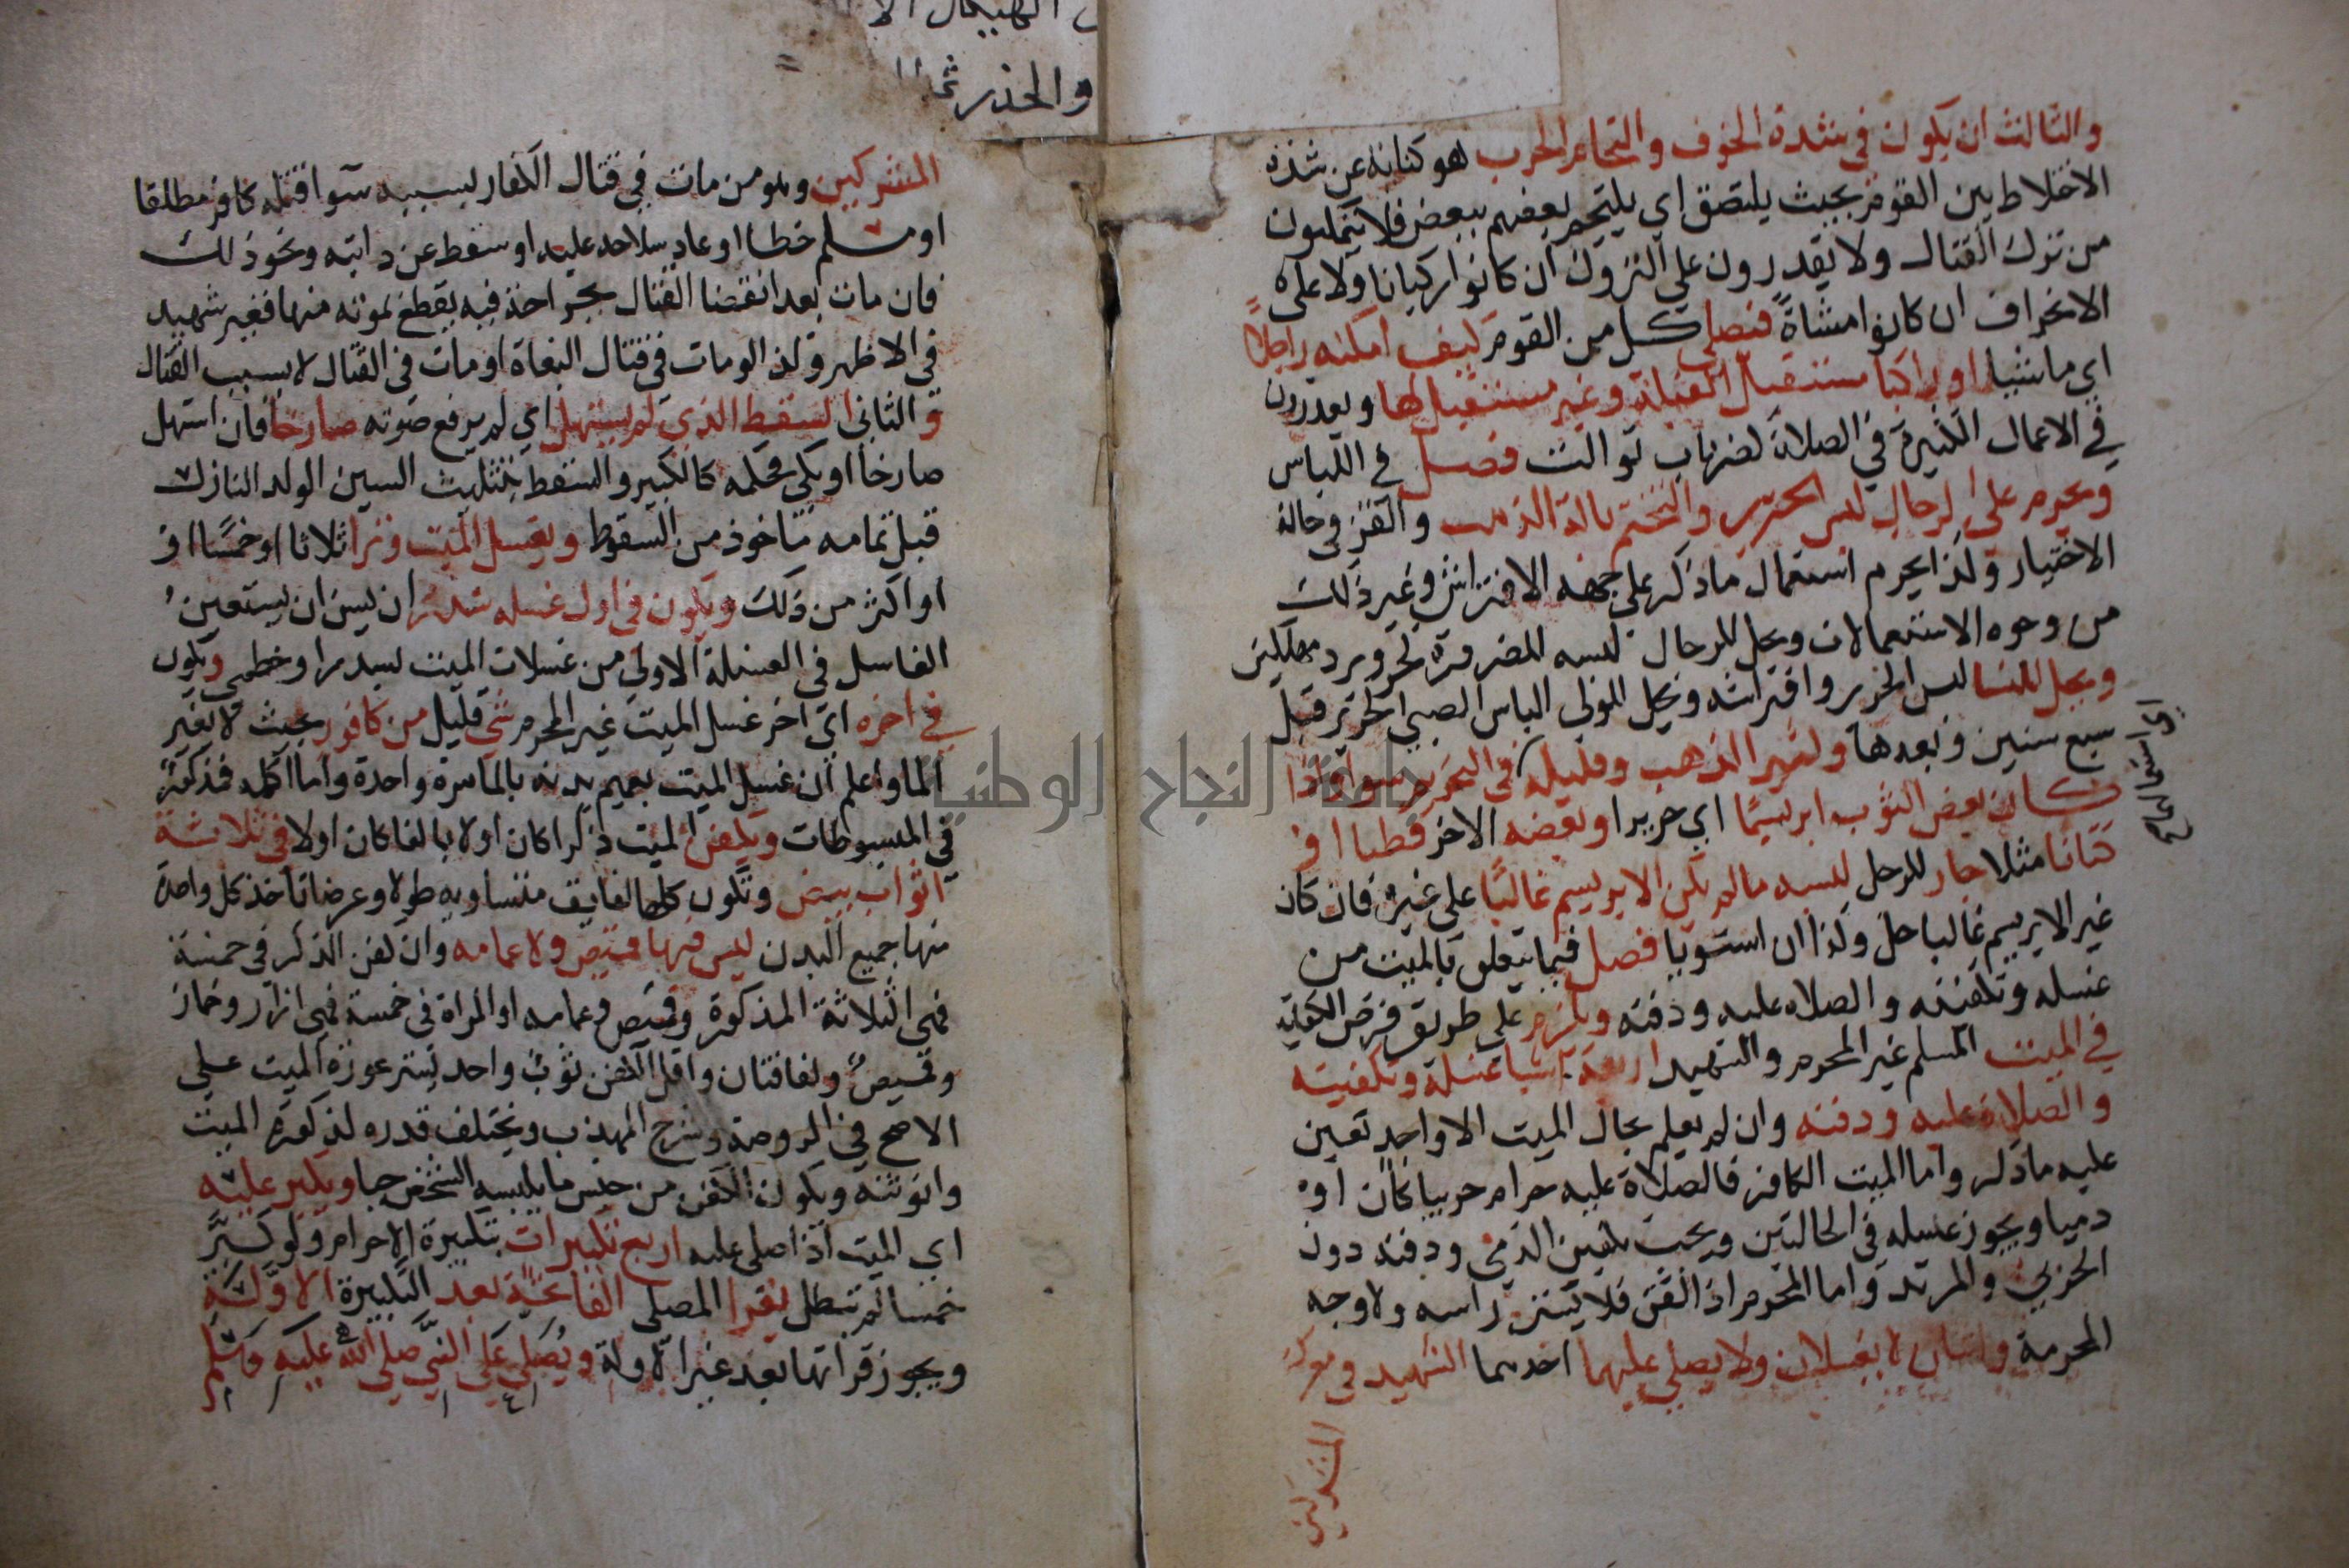 والثالث ان يكون في شدة الخوف والتحام الحرب هو كناية عن شدة
الاختلاط بين القوم بحيث يلتصق اي يلتحم بعضهم ببعض فلا يتمكنون
من ترك القتال ولا يقدرون علي النزول ان كانوا ركبانا ولا علي
الانحراف ان كانوا مشاة فيصلي كل من القوم كيف امكنه راجلاً
اي ماشيا او راكبا مستقبل القبلة وغير مستقبل لها ويعذرون
في الاعمال الكثيرة في الصلاة كضربات توالت فصل في اللباس
ويحرم علي الرجال لبس الحرير والتختم بالذهب والقز في حالة
الاختيار وكذا يحرم استعمال ما ذكر علي جهة الافتراش وغير ذلك
من وجوه الاستعمالات ويحل للرجال لبسه للضرورة كحر وبرد مهلكين
ويحل للنسا لبس الحرير وافتراشه ويحل للولي الباس الصبي الحرير قبل
سبع سنين وبعدها وكثير الذهب وقليله في التحريم سوا واذا
كان بعض الثوب ابريسيمًا اي حريرا وبعضه الاخر قطنا او
كتانا مثلا جاز للرجل لبسه ما لم يكن الابريسم غالبًا علي غيره فان كان
غير الابريسم غالبا حل وكذا ان استويا فصل فيما يتعلق بالميت من
غسله وتكفينه والصلاه عليه ودفنه ويلزم علي طريق فرض الكفاية
في الميت المسلم غير المحرم والشهيد اربعة اشيا غسله وتكفينه
والصلاة عليه ودفنه وان لم يعلم بحال الميت الا واحد تعين
عليه ما ذكر واما الميت الكافر فالصلاة عليه حرام حربيا كان او
ذميا ويجوز غسله في الحالتين ويجب تكفين الذمي ودفنه دون
الحربي والمرتد واما المحرم اذا كفن فلا يستر راسه ولا وجه
المحرمة واثنان لا يغسلان ولا يصلي عليهما احدهما الشهيد في معركة
المشركين
والحذر
المشركين وهو من مات في قتال الكفار بسببه سوا قتله كافر مطلقا
او مسلم خطا او عاد سلاحه عليه او سقط عن دابته ونحو ذلك
فان مات بعد انقضا القتال بجراحة فيه يقطع بموته منها فغير شهيد
في الاظهر وكذا لو مات في قتال البغاة او مات في القتال لا بسبب القتال
والثاني السقط الذي لم يستهل اي لم يرفع صوته صارخا فان استهل
صارخا او بكي فحكمه كالكبير والسقط بتثليث السين الولد النازل
قبل تمامه ماخوذ من السقوط ويغسل الميت وترا ثلاثا او خمسًا او
او اكثر من ذلك ويكون في اول غسله سدر ان يسن ان يستعين
الغاسل في الغسلة الاولي من غسلات الميت بسدر او خطمي ويكون
في اخره اي اخر غسل الميت غير المحرم شي قليل من كافور بحيث لا يغير
الما واعلم ان غسل الميت بعميم بدنه بالما مرة واحدة واما اكمله فمذكور
في المبسوطات ويكفن الميت ذكرا كان او لا بالغا كان او لا في ثلاثة
اثواب بيض وتكون كلها لفايف متساويه طولا وعرضا تاخذ كل واحدة
منها جميع البدن ليس فيها قميص ولا عمامه وان كفن الذكر في خمسة
فهي الثلاثة المذكورة وقميص وعمامه او المراة في خمسة فهي ازار وخمار
وقميص ولفافتان واقل الكفن ثوب واحد يستر عورة الميت علي
الاصح في الروضة وشرح المهذب ويختلف قدره بذكورة الميت
وانوثته ويكون الكفن من جنس ما يلبسه الشخص حيا ويكبر عليه
اي الميت اذا صلي عليه اربع تكبيرات بتكبيرة الاحرام ولو كبَّر
خمسا لم تبطل يقرا المصلي الفاتحة بعد التكبيرة الاولي
ويجوز قراتها بعد غير الاولة ويُصَلي عَلي النبي صلي الله عليه وسلم
جامعة النجاح الوطنية